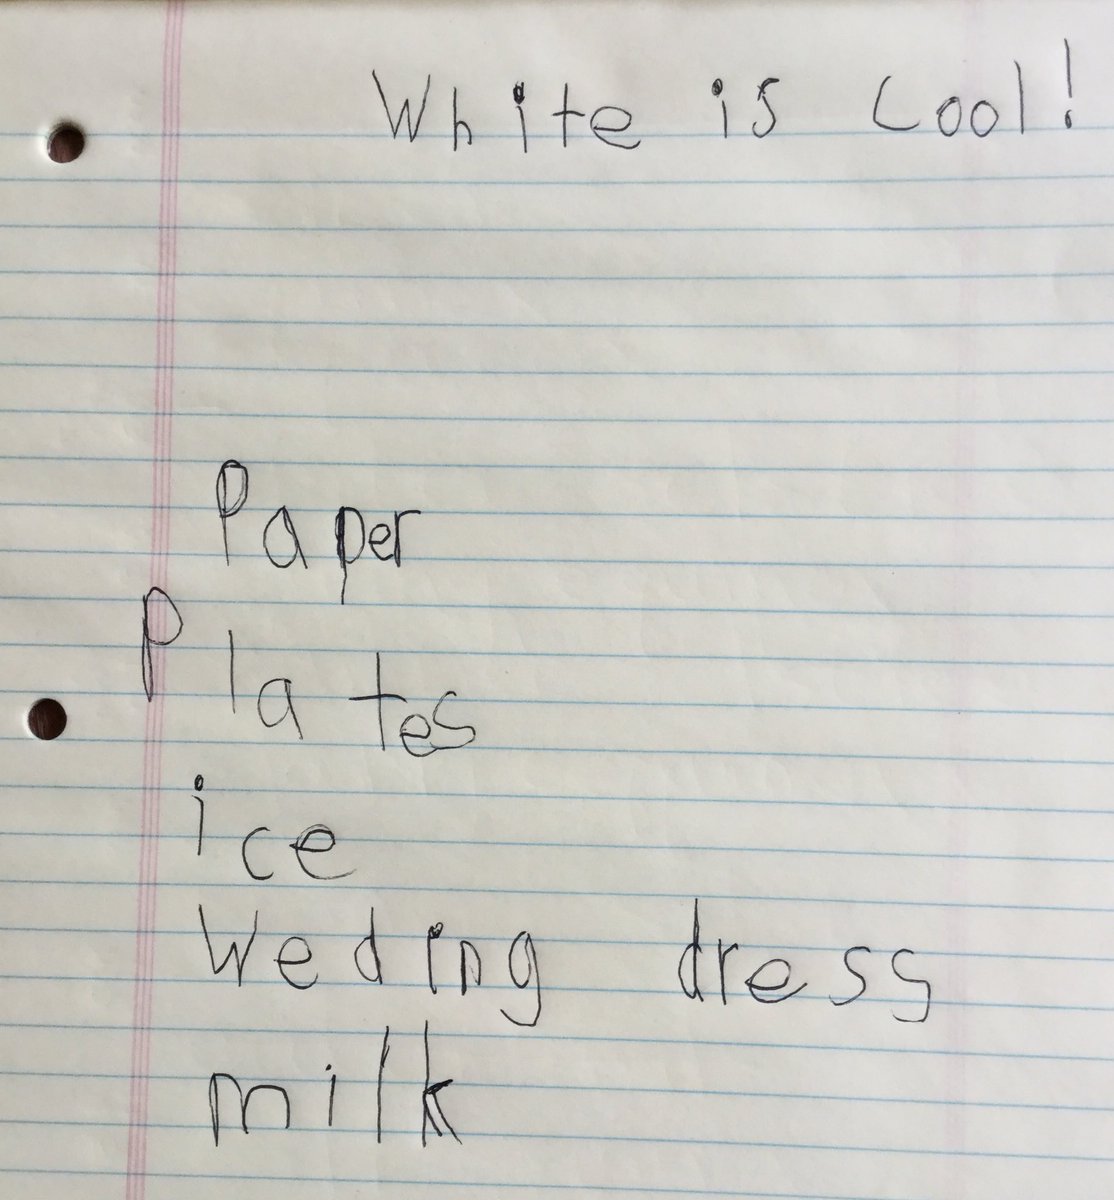 White is Cool!
Paper
Plates
ice
Weding dress
milk